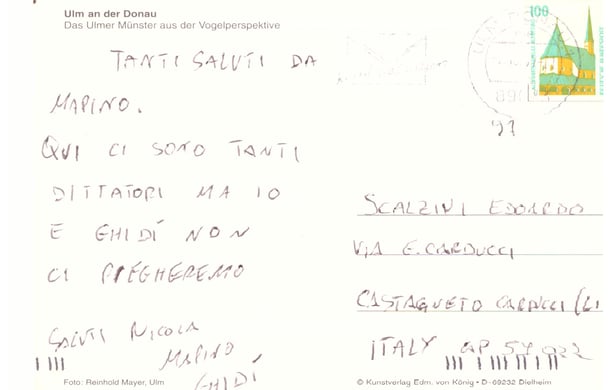 Ulm an der Donau
Das Ulmer Münster aus der Vogelperspektive
TANTI SALUTI DA
MARINO.
QUI CI SONO TANTI
DITTATORI MA IO
E GHIDÍ NON
CI PIEGHEREMO
SALUTI NICOLA
MARINO
GHIDÍ
Foto: Reinhold Mayer, Ulm
100
89
97
SCALZINI EDOARDO
VIA G. CARDUCCI
CASTAGNETO CARDUCCI (LI
ITALY CAP 57022
© Kunstverlag Edm. von König • D-69232 Dielheim